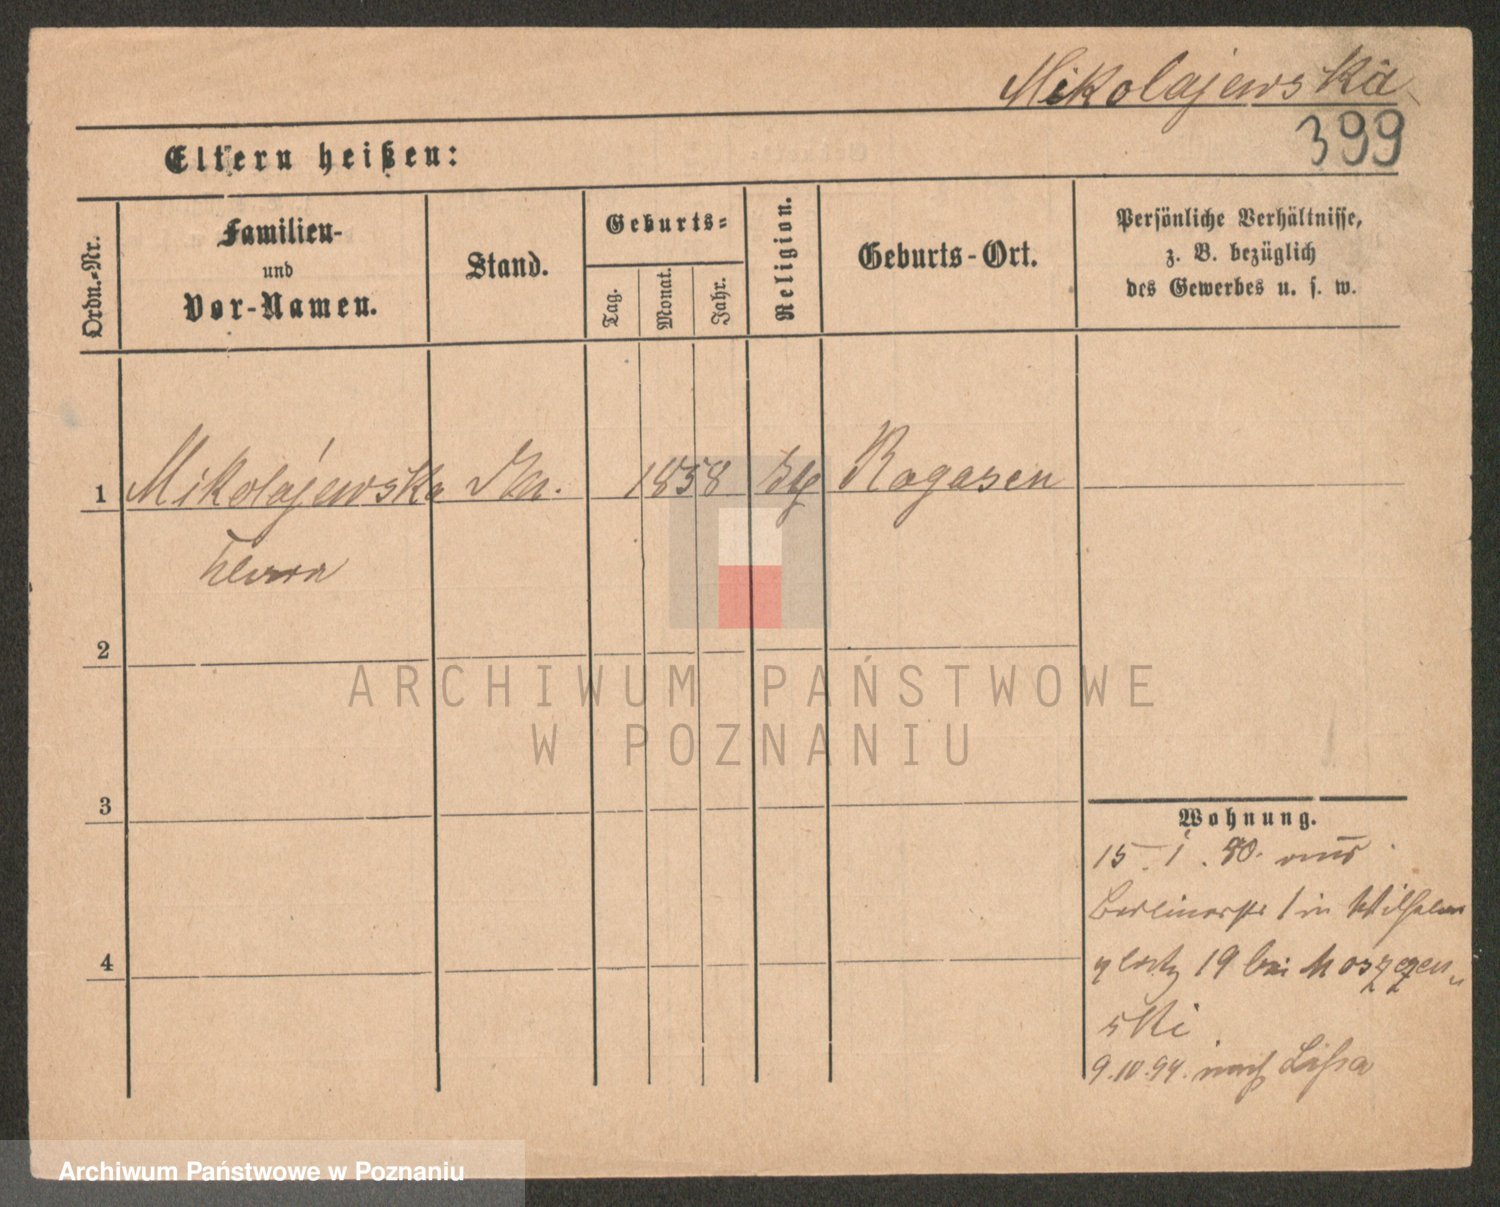 Mikolajewska
399
Eltern heißen:
Ordn.-Nr.
Familien-
und
Vor-Namen.
Stand.
Geburts-
Tag.
Monat.
Jahr.
Religion.
Geburts-Ort.
Persönliche Verhältnisse,
z. B. bezüglich
des Gewerbes u. s. w.
1 Mikolajewska 1858 Rogasen
2
3
4
Wohnung.
15. 1. 80.
Berlinerstr 1 in Wilhelm
platz 19 bei
ski
9.10.94. nach Lissa
ARCHIWUM PAŃSTWOWE
W POZNANIU
Archiwum Państwowe w Poznaniu